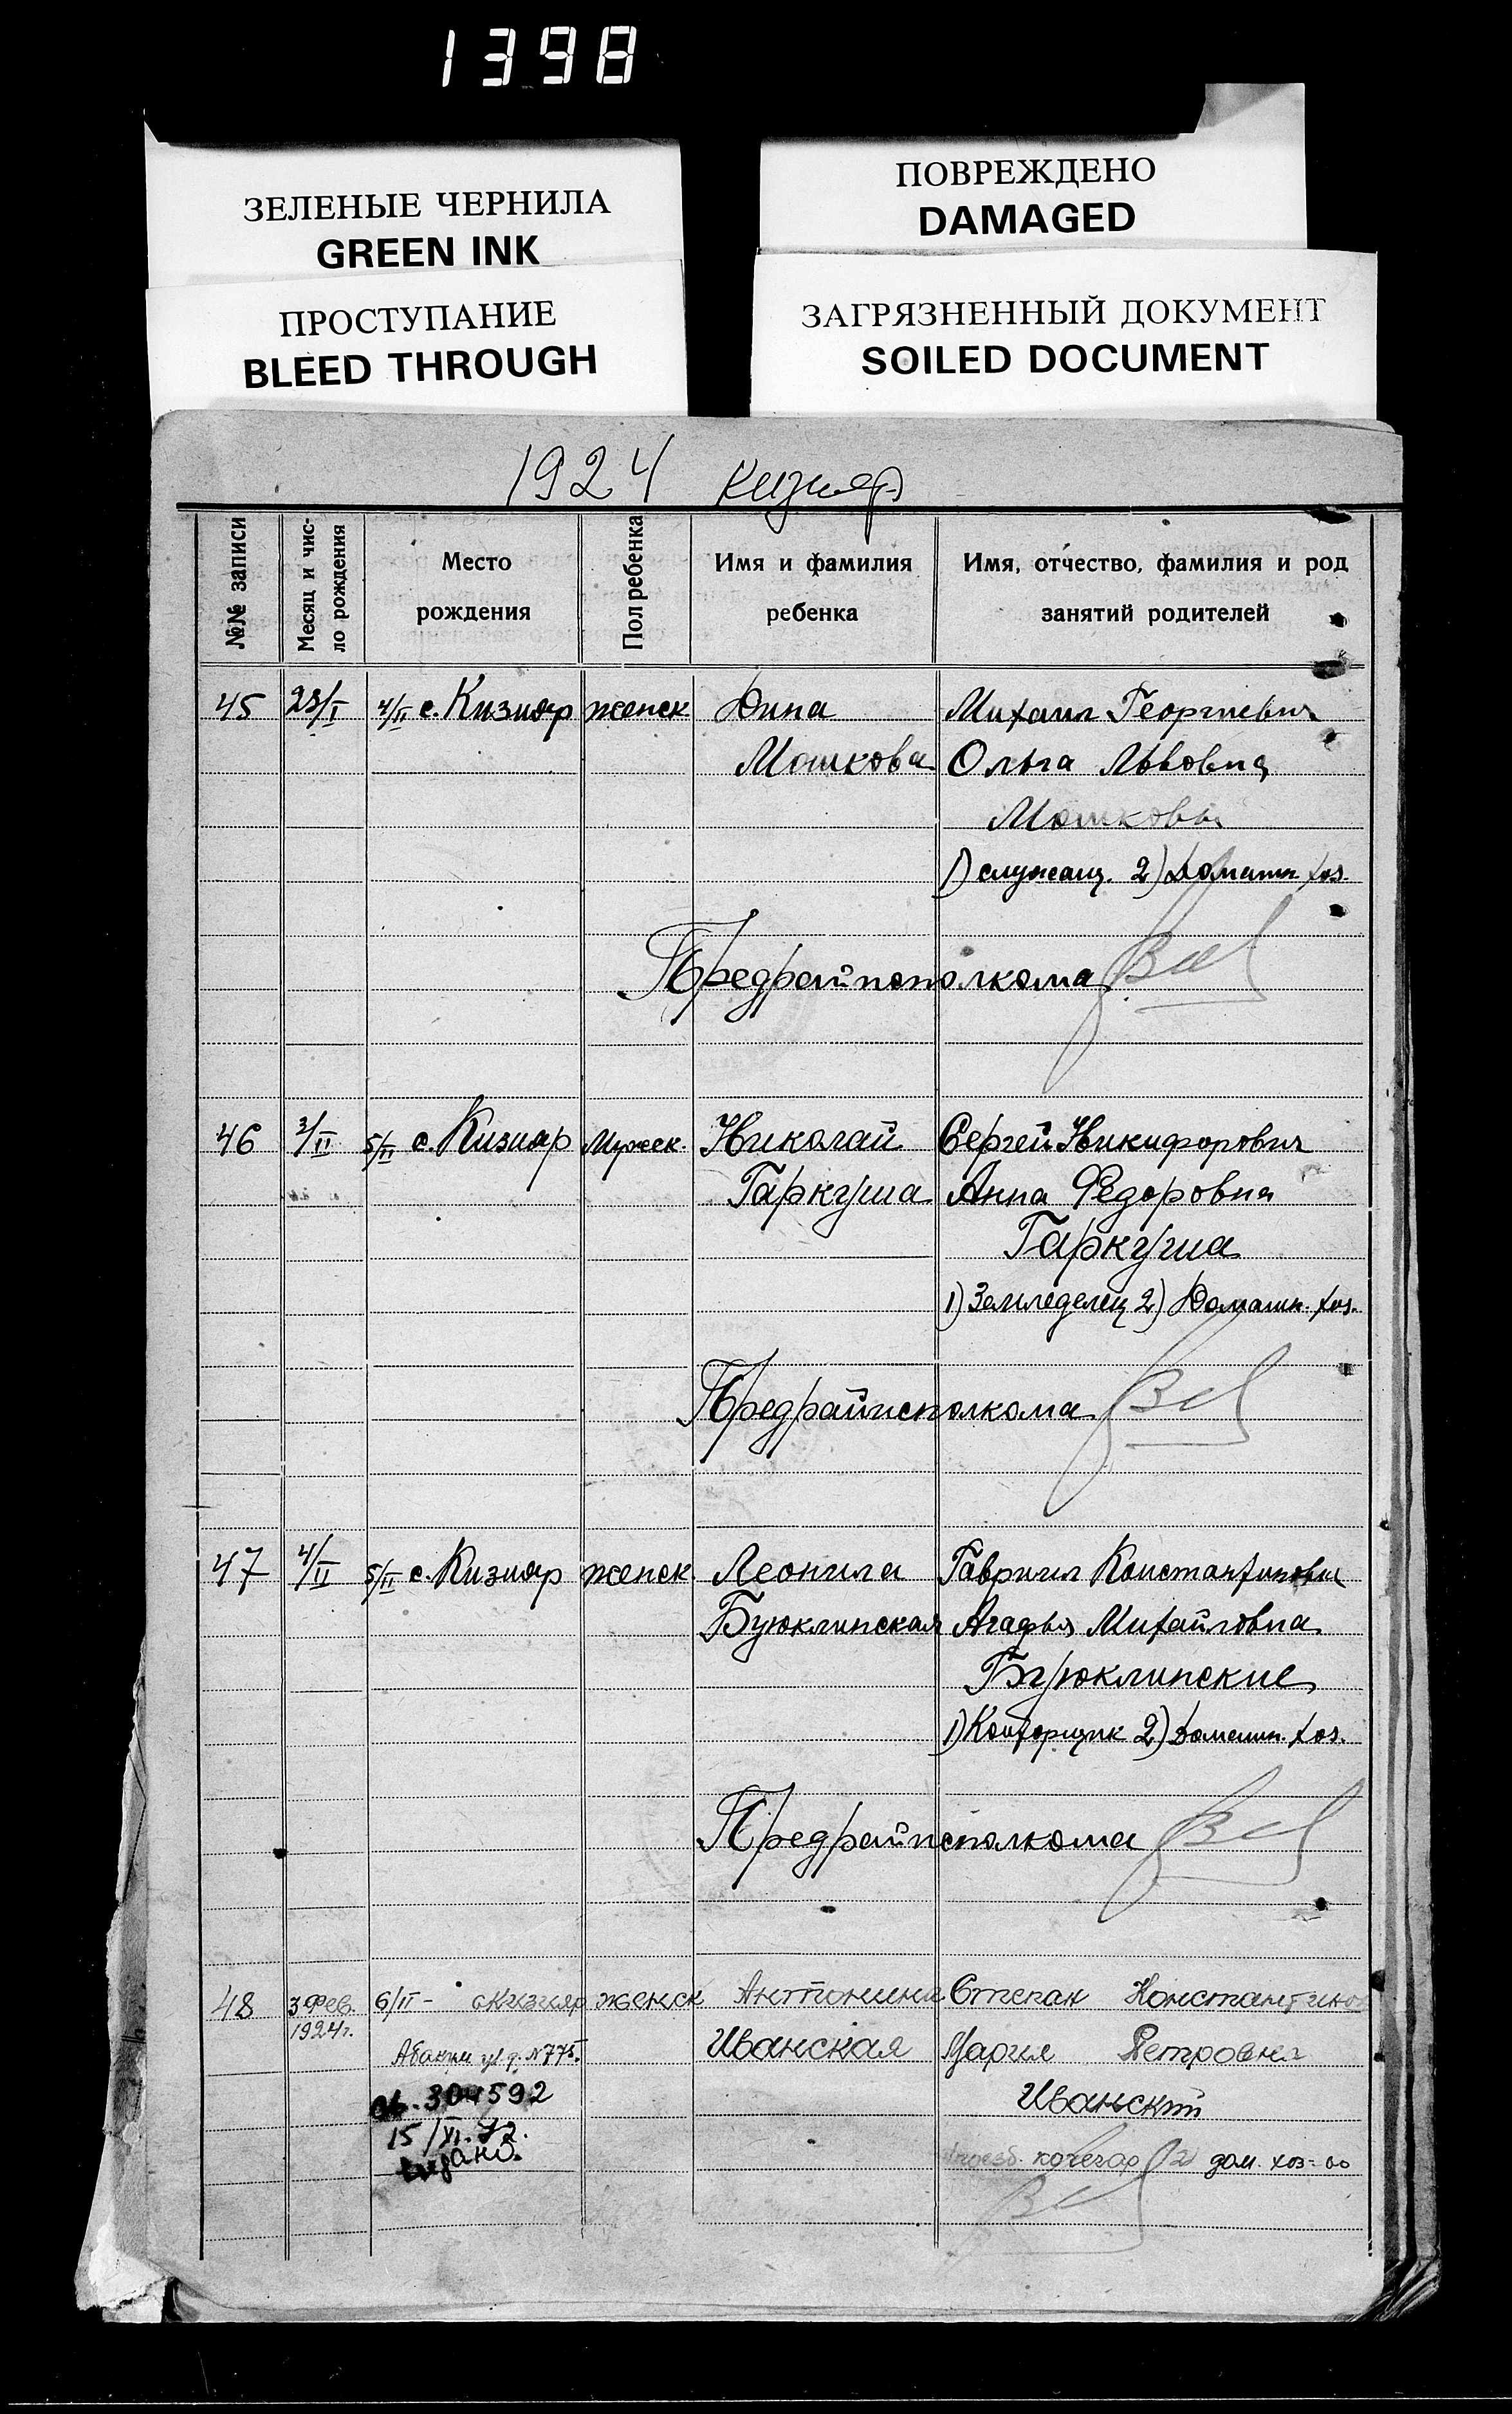 1398
ЗЕЛЕНЫЕ ЧЕРНИЛА
GREEN INK
ПРОСТУПАНИЕ
BLEED THROUGH
ПОВРЕЖДЕНО
DAMAGED
ЗАГРЯЗНЕННЫЙ ДОКУМЕНТ
SOILED DOCUMENT
1924 Кизияр
№№ записи
Месяц и чис-
ло рождения
Место
рождения
Пол ребенка
Имя и фамилия
ребенка
Имя, отчество, фамилия и род
занятий родителей
45 23/I 4/II с. Кизияр женск Михаил Георгиевич
Мошкова Ольга Львовна
Мошковы
1) служащ. 2) Домашн хоз.
Предрайисполкома
46 3/II 5/II с. Кизияр Мужеск. Николай Сергей Никифорович
Гаркуша Анна Федоровна
Гаркуша
1) Земледелец 2) Домашн. хоз.
Предрайисполкома
47 4/II 5/II с. Кизияр женск. Леонила Гавриил Константинович
Буюклинская Агафья Михайловна
Буюклинские
1) Конторщик 2) Домашн. хоз.
Предрайисполкома
48 3 Фев. 6/II - с Кизияр женск Антонина Степан Константинов
1924 г. Иванская Мария Петровна
ул. д. N775.
Иванский
304592
15/XI.72.
кочегар 2) дом. хоз-во